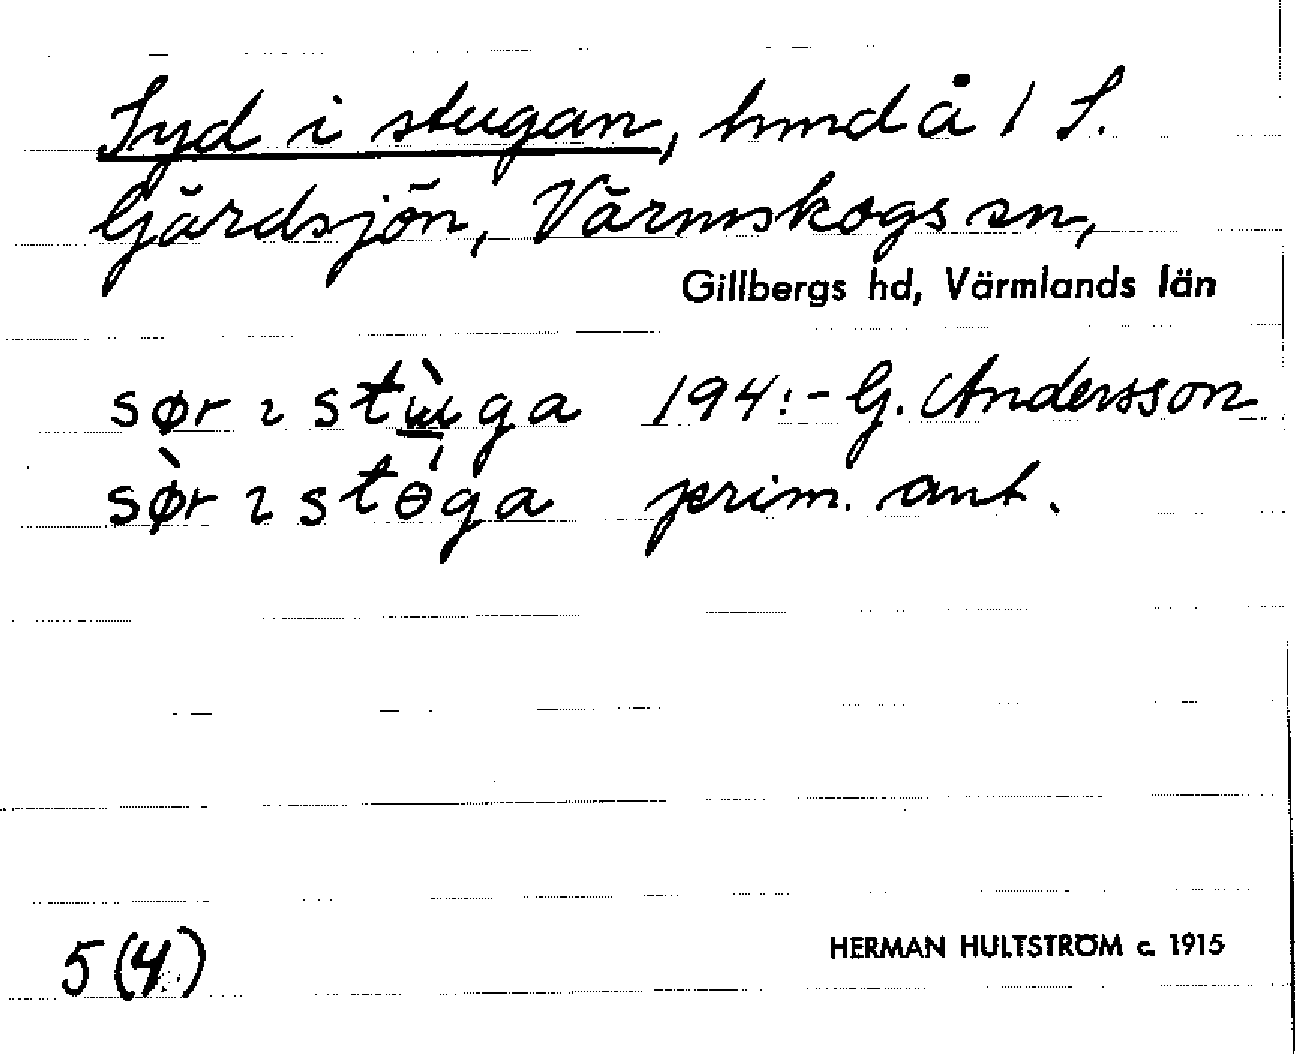 Syd i stugan, hmd å 1 S.
Gärdsjön, Värmskogs sn,
Gillbergs hd, Värmlands län
sør ɩ stɯ̀ga 194:- G. Andersson
sø̀r ɩ stɵ́ga prim. ant.
5(4)
HERMAN HULTSTRÖM c. 1915